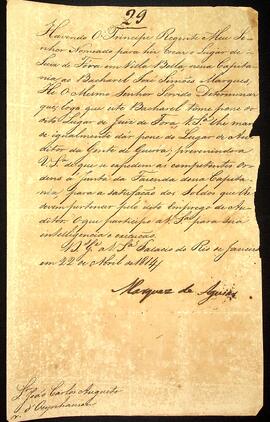 29
Havendo O Principe Regente Meu Se-
nhor Nomeado para hir crear o Lugar de
Juiz de Fóra em Villa Bella nessa Capita-
nia ao Bacharel José Simões Marques,
He O Mesmo Senhor Servido Determinar
que, logo que este Bacharel tome posse do
dito Lugar de Juiz de Fora, V. Sa. lhe man-
de igualmente dar posse do Lugar de Au-
ditor da Gente de Guerra; prevenindo a
V. Sa. de que se expedem as competentes Or-
dens á Junta da Fazenda dessa Capita-
nia para a satisfação dos Soldos que lhe
devem pertencer pelo dito Emprego de Au-
ditor. O que participo a V. Sa. para sua
intelligencia e execução.
Deos Ge. a V. Sa. Palacio do Rio de Janeiro
em 22 de Abril de 1814
Marquez de Aguiar
Sr. João Carlos Augusto
d'Oeynhausen